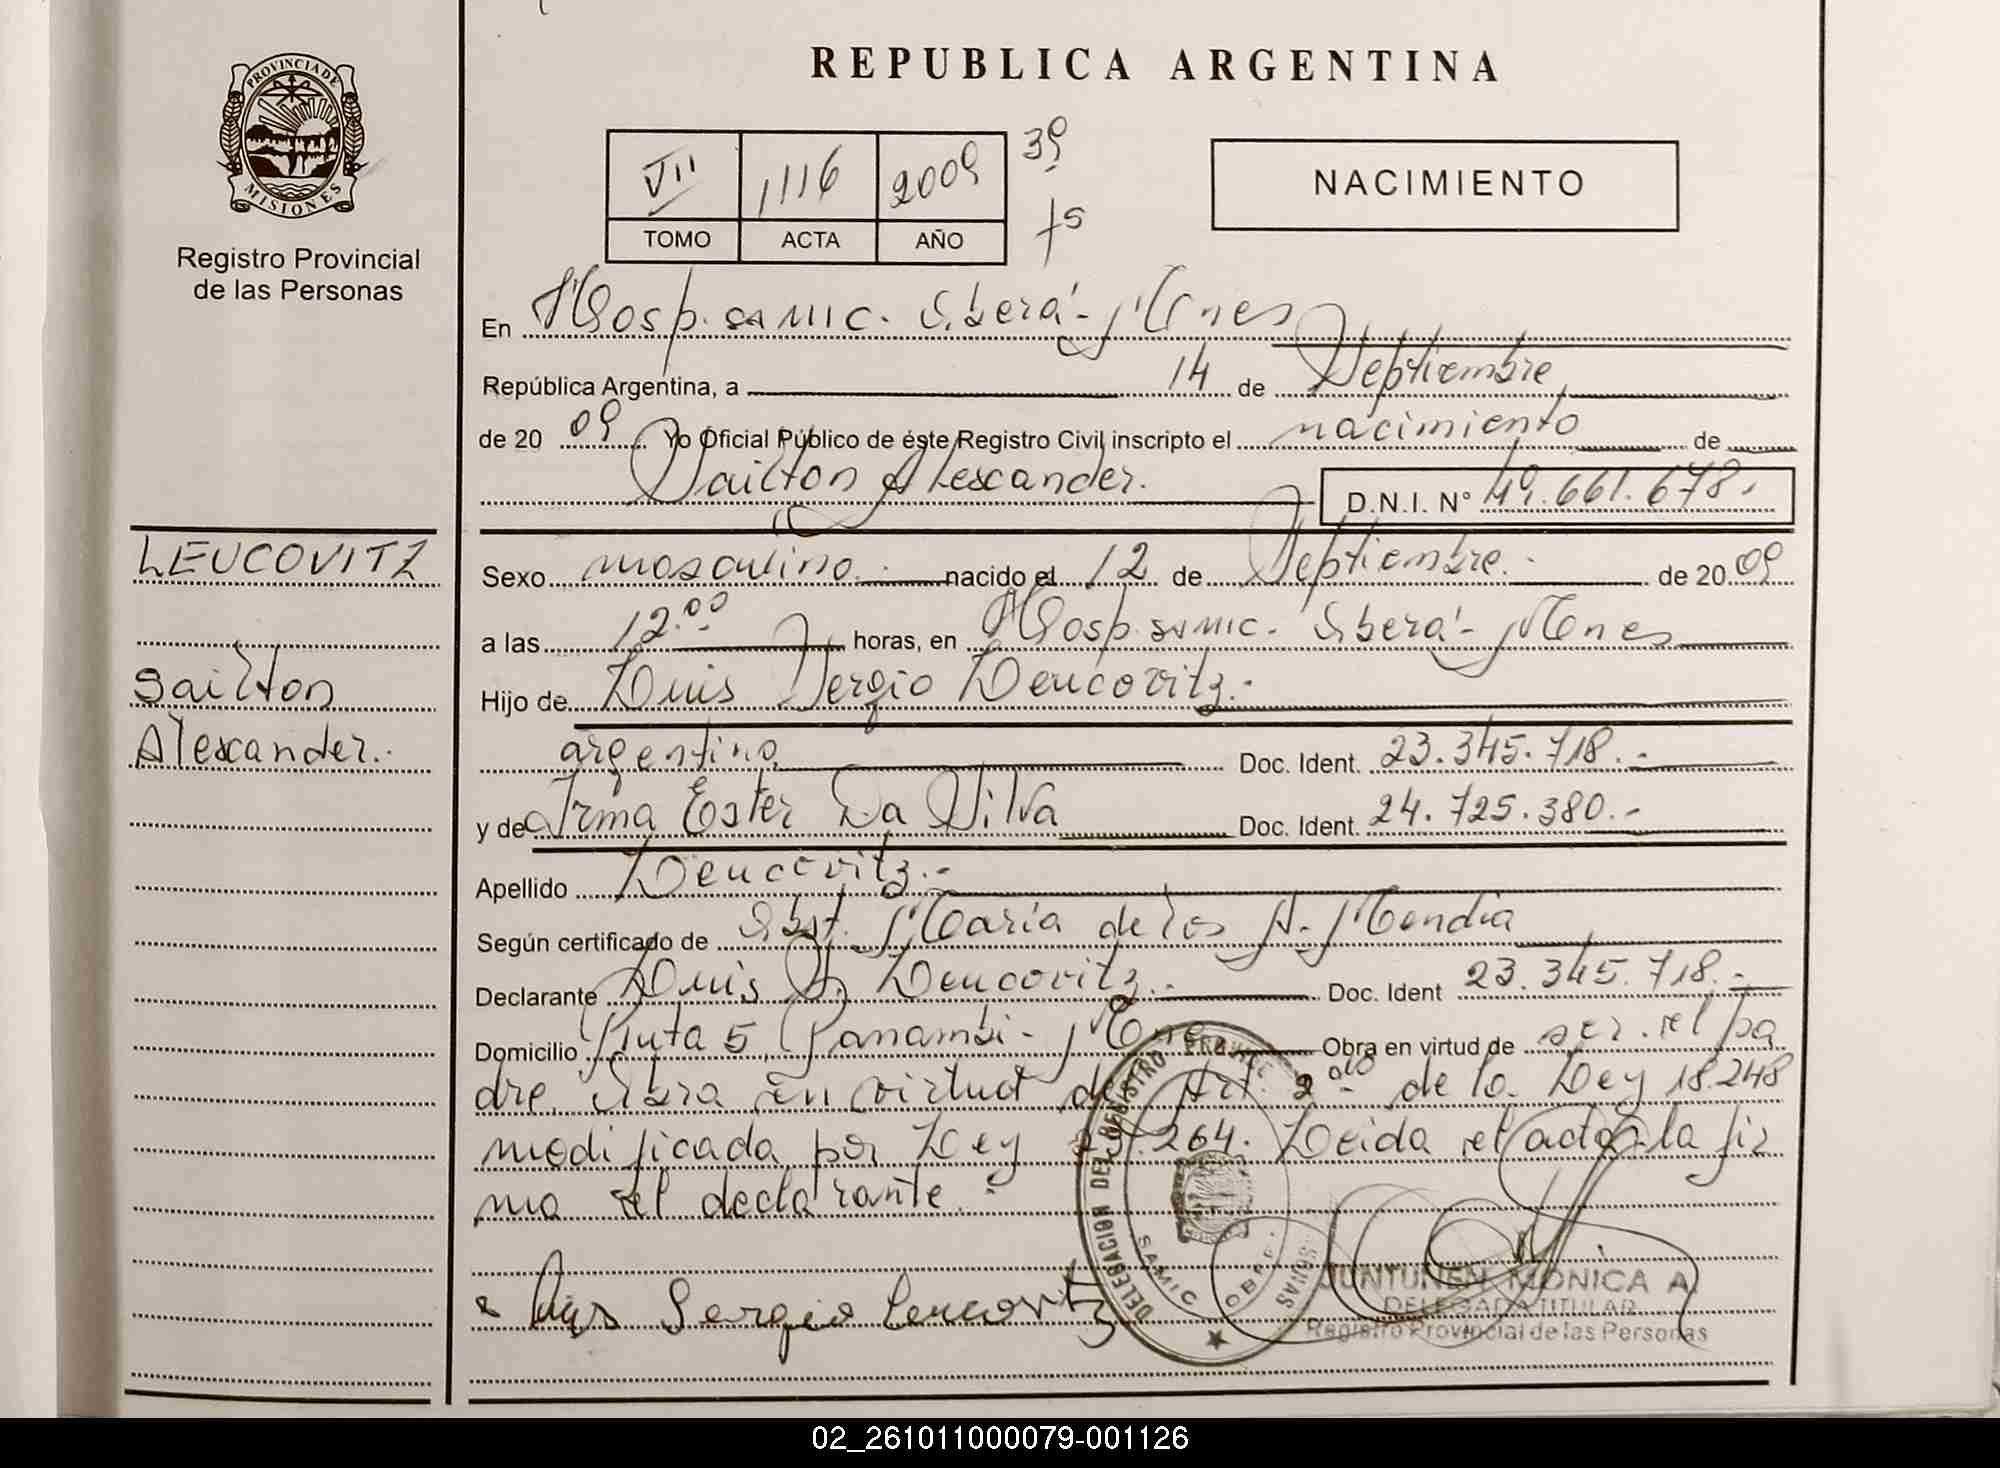 REPUBLICA ARGENTINA
PROVINCIA DE
MISIONES
Registro Provincial
de las Personas
VII 1116 2009
TOMO ACTA AÑO
NACIMIENTO
En Hosp. SAMIC. Oberá - Mnes
República Argentina, a 14 de Septiembre
de 20 09 Yo Oficial Público de éste Registro Civil inscripto el nacimiento de
Sailton Alexcander. D.N.I. N° 49.661.678.
LEUCOVITZ
Sailton
Alexcander.
Sexo masculino. nacido el 12 de Septiembre. de 20 09
a las 12.00 horas, en Hosp. SAMIC. Oberá - Mones
Hijo de Luis Sergio Leucovitz.-
argentino Doc. Ident. 23.345.718.-
y de Irma Ester Da Silva Doc. Ident. 24.725.380.-
Apellido Leucovitz.-
Según certificado de Obst. María de los A. Mendia
Declarante Luis S. Leucovitz.- Doc. Ident 23.345.718.-
Domicilio Ruta 5, Panambi - Obra en virtud de ser el pa
dre. Obra en virtud de Art. 2do de la Ley 18.248
modificada por Ley 264. Leida el acta la fir
ma el declarante.-
Luis Sergio Leucovitz
DELEGACION DEL REGISTRO
SAMIC OBERA
JUNTUNEN MONICA A.
DELEGADA TITULAR
Registro Provincial de las Personas
02_261011000079-001126